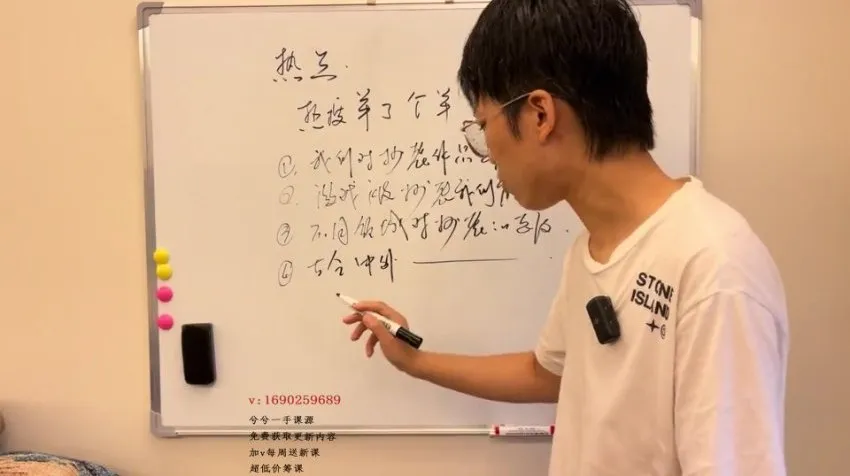 热点.
热 羊了个羊
① 我们对抄袭作品
② 游戏 抄袭我们
③ 不同领域对抄袭
④ 古今中外
STONE
ISLAND
v:1690259689
兮兮一手课源
免费获取更新内容
加v每周送新课
超低价筹课